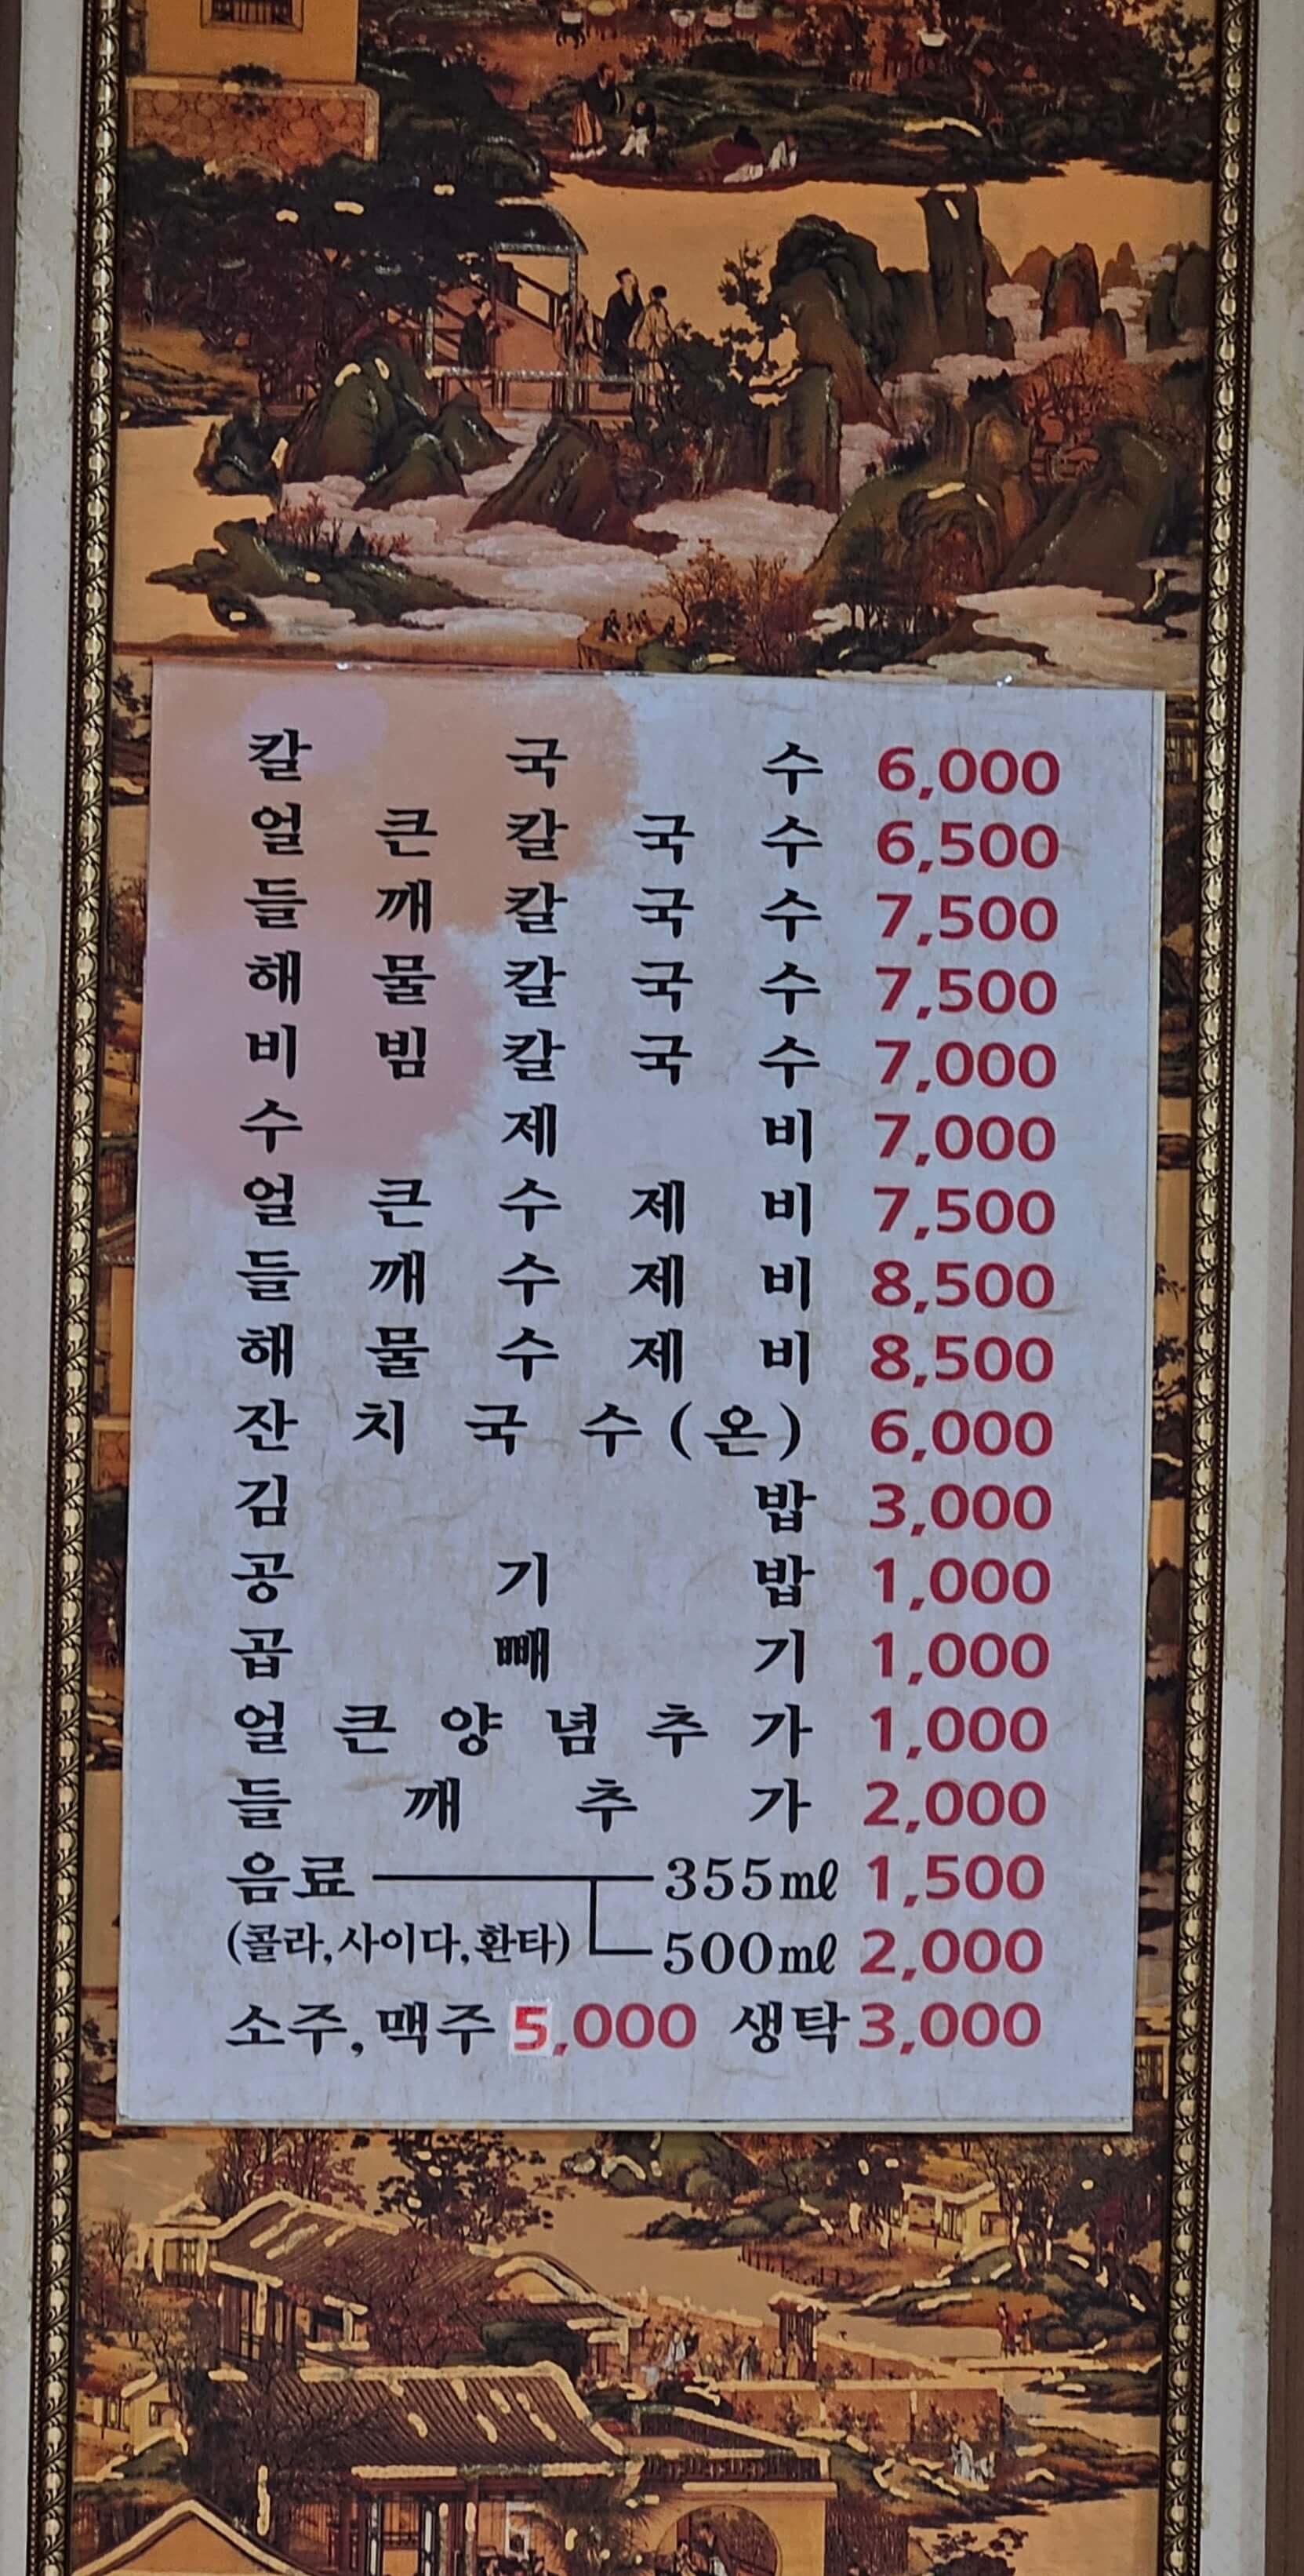 칼국수 6,000
얼큰칼국수 6,500
들깨칼국수 7,500
해물칼국수 7,500
비빔칼국수 7,000
수제비 7,000
얼큰수제비 7,500
들깨수제비 8,500
해물수제비 8,500
잔치국수(온) 6,000
김밥 3,000
공기밥 1,000
곱빼기 1,000
얼큰양념추가 1,000
들깨추가 2,000
음료 355㎖ 1,500
(콜라,사이다,환타) 500㎖ 2,000
소주,맥주 5,000 생탁 3,000